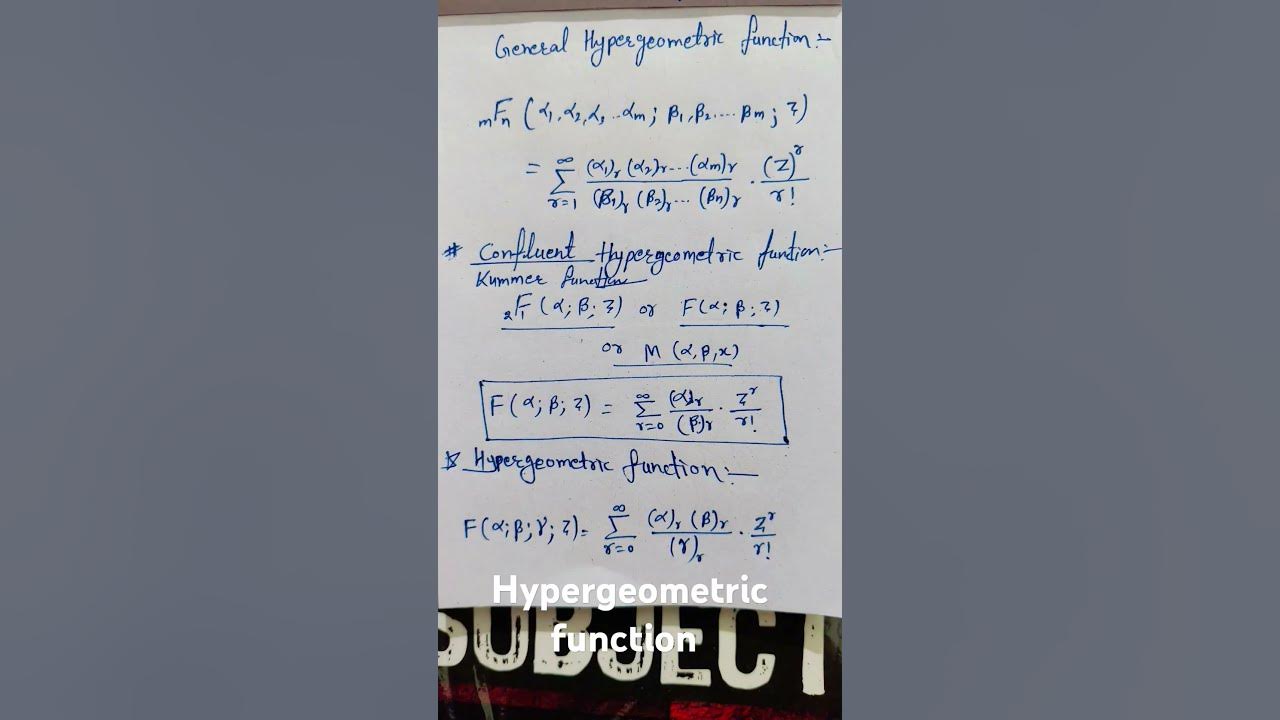 General Hypergeometric function:-
mFn (α1, α2, α3 ... αm; β1, β2 .... βm; z)
= ∞ Σ r=1 (α1)r (α2)r ... (αm)r / (β1)r (β2)r ... (βn)r · (Z)^r / r!
# Confluent Hypergeometric funtion:-
Kummer function
2F1 (α; β; z) or F(α; β; z)
or M (α, β, x)
F(α; β; z) = ∞ Σ r=0 (α)r / (β)r · z^r / r!
Hypergeometric function:-
F(α; β; γ; z) = ∞ Σ r=0 (α)r (β)r / (γ)r · z^r / r!
Hypergeometric
function
SUBJECT